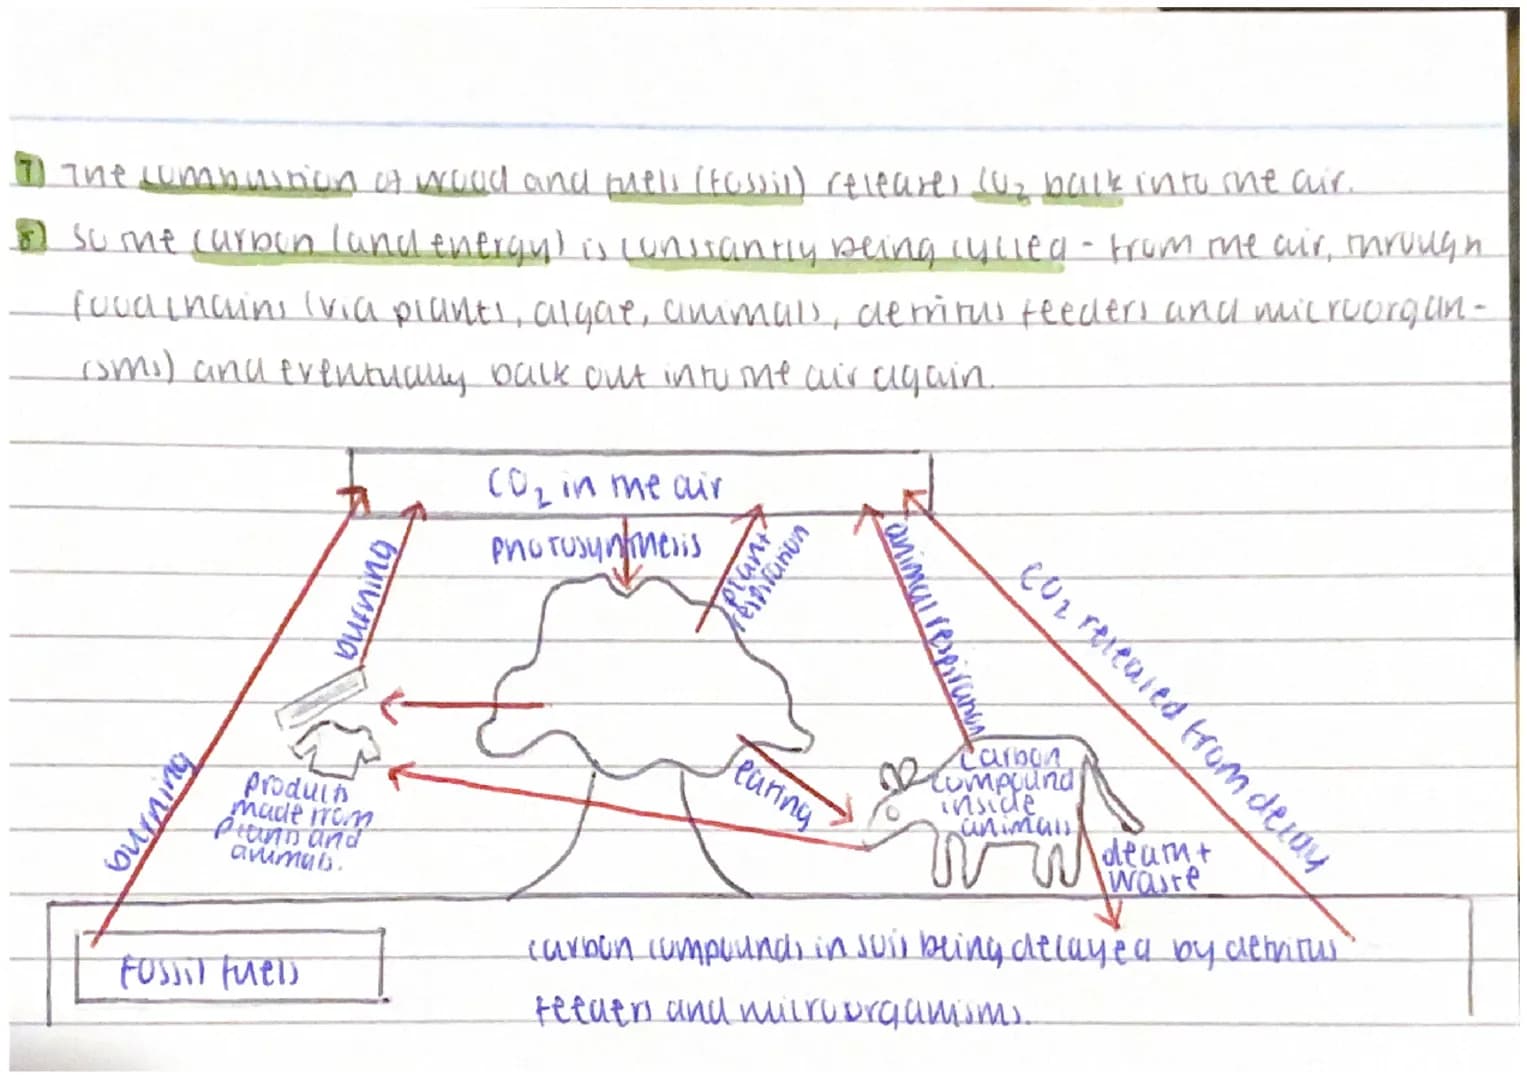 7) The combustion of wood and fuels (fossil) releases CO2 back into the air.
8) So the carbon (and energy) is constantly being cycled - from the air, through
food chains (via plants, algae, animals, detritus feeders and microorgan-
isms) and eventually back out into the air again.
CO2 in the air
photosynthesis
plant
respiration
burning
animal respiration
CO2 released from decay
burning
products
made from
plants and
animals.
eating
carbon
compound
inside
animals
death +
waste
Fossil fuels
carbon compounds in soil being decayed by detritus
feeders and microorganisms.